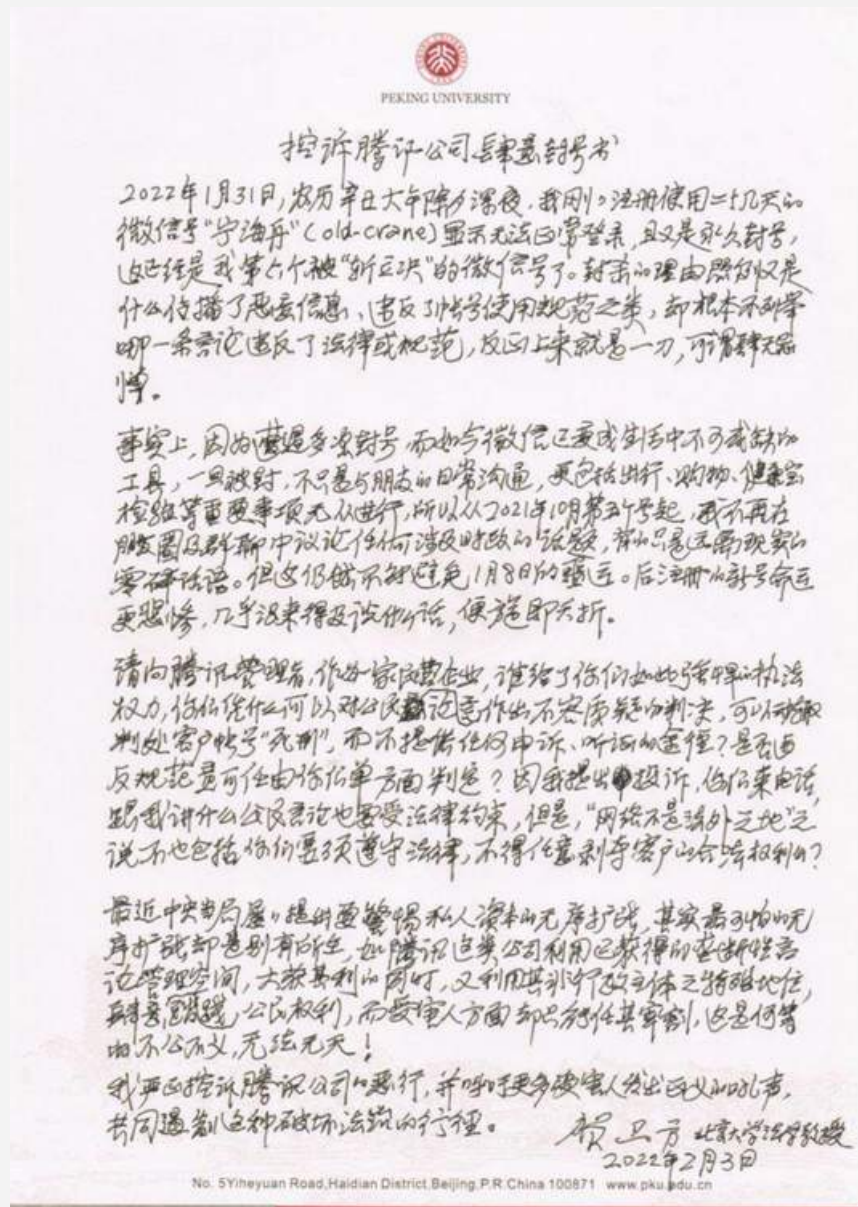 PEKING UNIVERSITY
控诉腾讯公司肆意封号书
2022年1月31日,农历辛丑大年除夕深夜,我刚刚注册使用二十几天的
微信号“宁海舟”(old-crane)显示无法正常登录,且又是永久封号,
这已经是我第六个被“斩立决”的微信号了。封杀的理由照例又是
什么传播了恶意信息、违反了帐号使用规范之类,却根本不列举
哪一条言论违反了法律或规范,反正上来就是一刀,可谓肆无忌
惮。
事实上,因为遭遇多次封号,而如今微信已变成生活中不可或缺的
工具,一旦被封,不只是与朋友的日常沟通,更包括出行、购物、健康宝
检验等重要事项无从进行,所以从2021年10月第五个号起,我不再在
朋友圈及群聊中议论任何涉及时政的话题,有的只是远离现实的
零碎话语。但这仍然不能避免1月8日的噩运。后注册的新号命运
更悲惨,几乎没来得及说什么话,便旋即夭折。
请问腾讯管理者,作为一家民营企业,谁给了你们如此强悍的执法
权力,你们凭什么可以对公民言论作出不容质疑的判决,可以任意
判处客户帐号“死刑”,而不提供任何申诉、听证的途径?是否违
反规范岂可任由你们单方面判定?因我提出投诉,你们来电话,
跟我讲什么公民言论也要受法律约束,但是,“网络不是法外之地”之
说不也包括你们要须遵守法律,不得任意剥夺客户的合法权利么?
最近中央当局屡屡提出要警惕私人资本的无序扩张,其实最可怕的无
序扩张却是别有所在,如腾讯这类公司利用已获得的垄断性言
论管理空间,大获其利的同时,又利用其非行政主体之特殊地位,
肆意侵犯公民权利,而受害人方面却只能任其宰割,这是何等
的不公不义,无法无天!
我严正控诉腾讯公司的恶行,并呼吁更多受害人发出正义的吼声,
共同遏制这种破坏法治的行径。
贺卫方 北京大学法学教授
2022年2月3日
No. 5Yiheyuan Road,Haidian District,Beijing,P.R.China 100871 www.pku.edu.cn